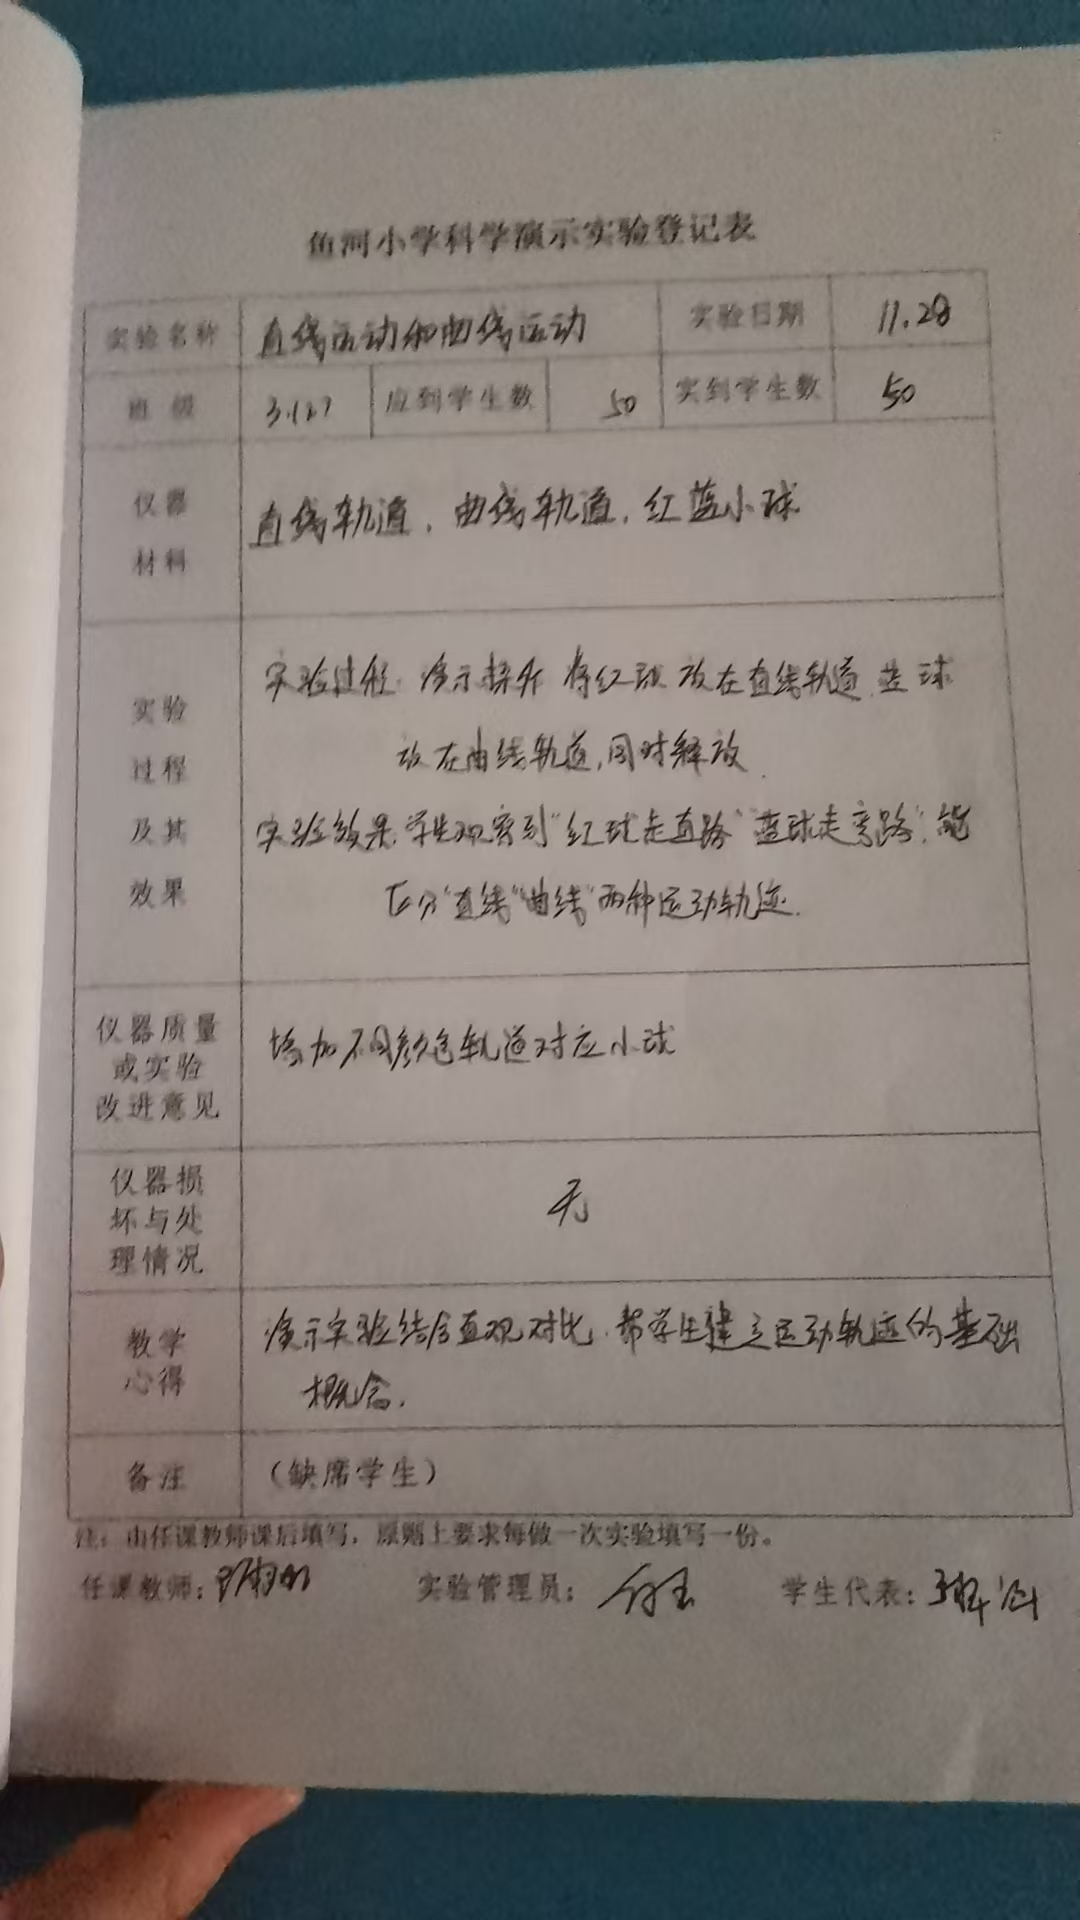 鱼河小学科学演示实验登记表
实验名称 直线运动和曲线运动 实验日期 11.28
班级 3.(2) 应到学生数 50 实到学生数 50
仪器
材料
直线轨道，曲线轨道，红蓝小球
实验
过程
及其
效果
实验过程：演示操作 将红球放在直线轨道，蓝球
放在曲线轨道，同时释放．
实验效果：学生观察到“红球走直路”“蓝球走弯路”，能
区分“直线”“曲线”两种运动轨迹．
仪器质量
或实验
改进意见
增加不同颜色轨道对应小球
仪器损
坏与处
理情况
无
教学
心得
演示实验结合直观对比，帮学生建立运动轨迹的基础
概念．
备注 （缺席学生）
注：由任课教师课后填写，原则上要求每做一次实验填写一份。
任课教师： 实验管理员： 学生代表：